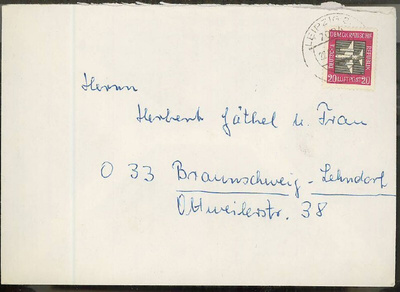 LEIPZIG
DEUTSCHE DEMOKRATISCHE REPUBLIK
20 LUFTPOST 20
Herrn
Herbert Gäthel u. Frau
O 33 Braunschweig-Lehndorf
Ottweilerstr. 38